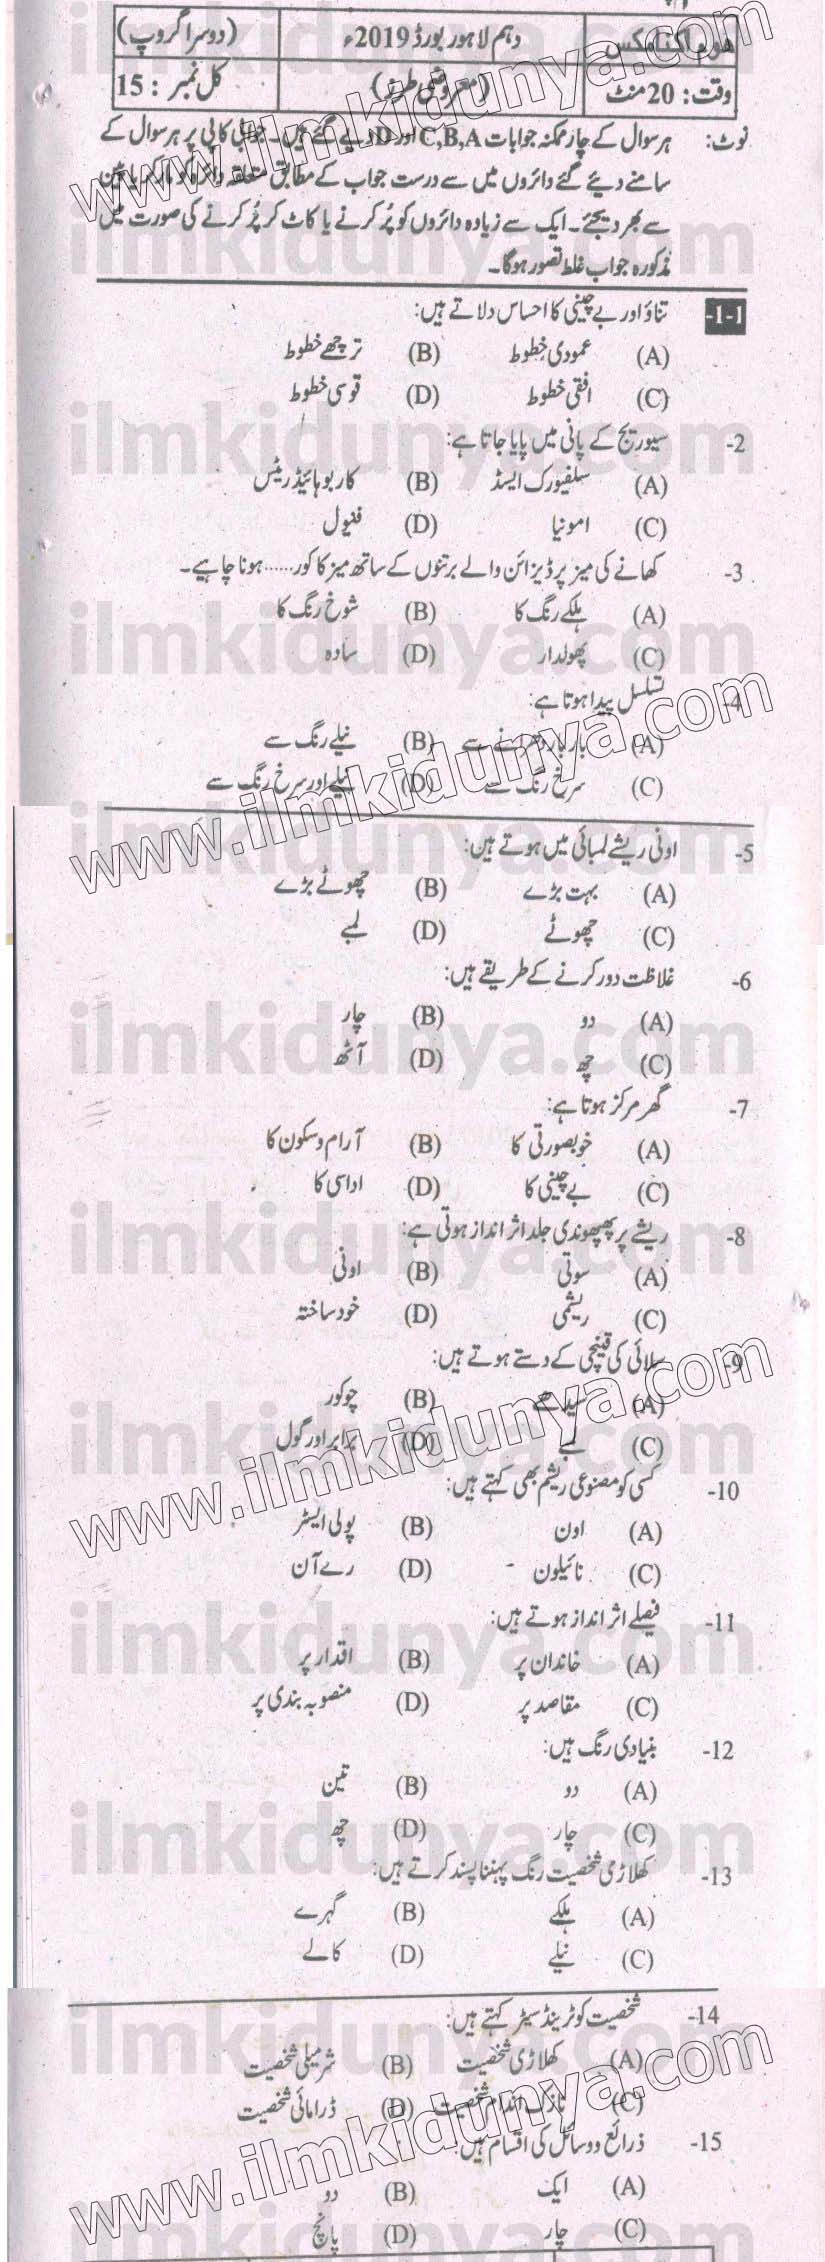 ہوم اکنامکس دہم لاہور بورڈ 2019ء (دوسرا گروپ)
وقت: 20 منٹ (معروضی طرز) کل نمبر: 15
نوٹ: ہر سوال کے چار ممکنہ جوابات A,B,C اور D دیے گئے ہیں۔ جوابی کاپی پر ہر سوال کے
سامنے دیئے گئے دائروں میں سے درست جواب کے مطابق متعلقہ دائرہ کو مارکر یا پین
سے بھر دیجئے۔ ایک سے زیادہ دائروں کو پُر کرنے یا کاٹ کر پُر کرنے کی صورت میں
مذکورہ جواب غلط تصور ہوگا۔
1-1- تناؤ اور بے چینی کا احساس دلاتے ہیں:
(A) عمودی خطوط (B) ترچھے خطوط
(C) افقی خطوط (D) قوسی خطوط
2- سیوریج کے پانی میں پایا جاتا ہے:
(A) سلفیورک ایسڈ (B) کاربوہائیڈریٹس
(C) امونیا (D) فینول
3- کھانے کی میز پر ڈیزائن والے برتنوں کے ساتھ میز کا کور......ہونا چاہیے۔
(A) ہلکے رنگ کا (B) شوخ رنگ کا
(C) پھولدار (D) سادہ
4- تسلسل پیدا ہوتا ہے:
(A) بار بار دھرانے سے (B) نیلے رنگ سے
(C) سرخ رنگ سے (D) نیلے اور سرخ رنگ سے
5- اونی ریشے لمبائی میں ہوتے ہین:
(A) بہت بڑے (B) چھوٹے بڑے
(C) چھوٹے (D) لمبے
6- غلاظت دور کرنے کے طریقے ہیں:
(A) دو (B) چار
(C) چھ (D) آٹھ
7- گھر مرکز ہوتا ہے:
(A) خوبصورتی کا (B) آرام و سکون کا
(C) بے چینی کا (D) اداسی کا
8- ریشے پر پھپھوندی جلد اثر انداز ہوتی ہے:
(A) سوتی (B) اونی
(C) ریشمی (D) خود ساختہ
9- سلائی کی قینچی کے دستے ہوتے ہیں:
(A) سیدھے (B) چوکور
(C) لمبے (D) برابر اور گول
10- کسی کو مصنوعی ریشم بھی کہتے ہیں:
(A) اون (B) پولی ایسٹر
(C) نائیلون (D) رے آن
11- فیصلے اثر انداز ہوتے ہیں:
(A) خاندان پر (B) اقدار پر
(C) مقاصد پر (D) منصوبہ بندی پر
12- بنیادی رنگ ہیں:
(A) دو (B) تین
(C) چار (D) چھ
13- کھلاڑی شخصیت رنگ پہننا پسند کرتے ہیں:
(A) ہلکے (B) گہرے
(C) نیلے (D) کالے
14- شخصیت کو ٹرینڈ سیٹر کہتے ہیں:
(A) کھلاڑی شخصیت (B) شرمیلی شخصیت
(C) نازک اندام شخصیت (D) ڈرامائی شخصیت
15- ذرائع و وسائل کی اقسام ہیں:
(A) ایک (B) دو
(C) چار (D) پانچ
ilmkidunya.com
www.ilmkidunya.com
ilmkidunya.com
ilmkidunya.com
ilmkidunya.com
www.ilmkidunya.com
ilmkidunya.com
ilmkidunya.com
ilmkidunya.com
www.ilmkidunya.com
ilmkidunya.com
ilmkidunya.com
ilmkidunya.com
ilmkidunya.com
www.ilmkidunya.com
ilmkidunya.com